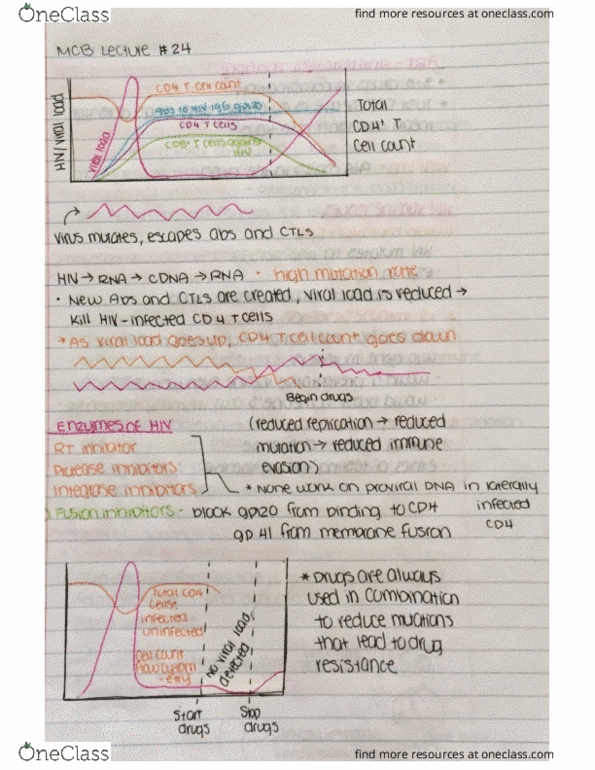 OneClass
find more resources at oneclass.com
MCB Lecture #24
HIV/viral load
viral load
CD4 T cell count
Abs to HIV IgG gp120
CD4 T cells
CD8+ T cells against
HIV
Total
CD4+ T
Cell count
virus mutates, escapes abs and CTLs
HIV → RNA → cDNA → RNA • high mutation rate
• New Abs and CTLs are created, viral load is reduced →
kill HIV-infected CD4 T cells
* As viral load goes up, CD4 T cell count goes down
Begin drugs
Enzymes of HIV
RT inhibitor
Protease inhibitors
Integrase inhibitors
(reduced replication → reduced
mutation → reduced immune
evasion)
* None work on proviral DNA in laterally
infected
CD4
Fusion inhibitors - block gp120 from binding to CD4
gp 41 from membrane fusion
Total CD4
cells:
infected
uninfected
Cell count
flow cytom
-etry
No viral load
detected
Start
drugs
Stop
drugs
* Drugs are always
used in combination
to reduce mutations
that lead to drug
resistance
OneClass
find more resources at oneclass.com